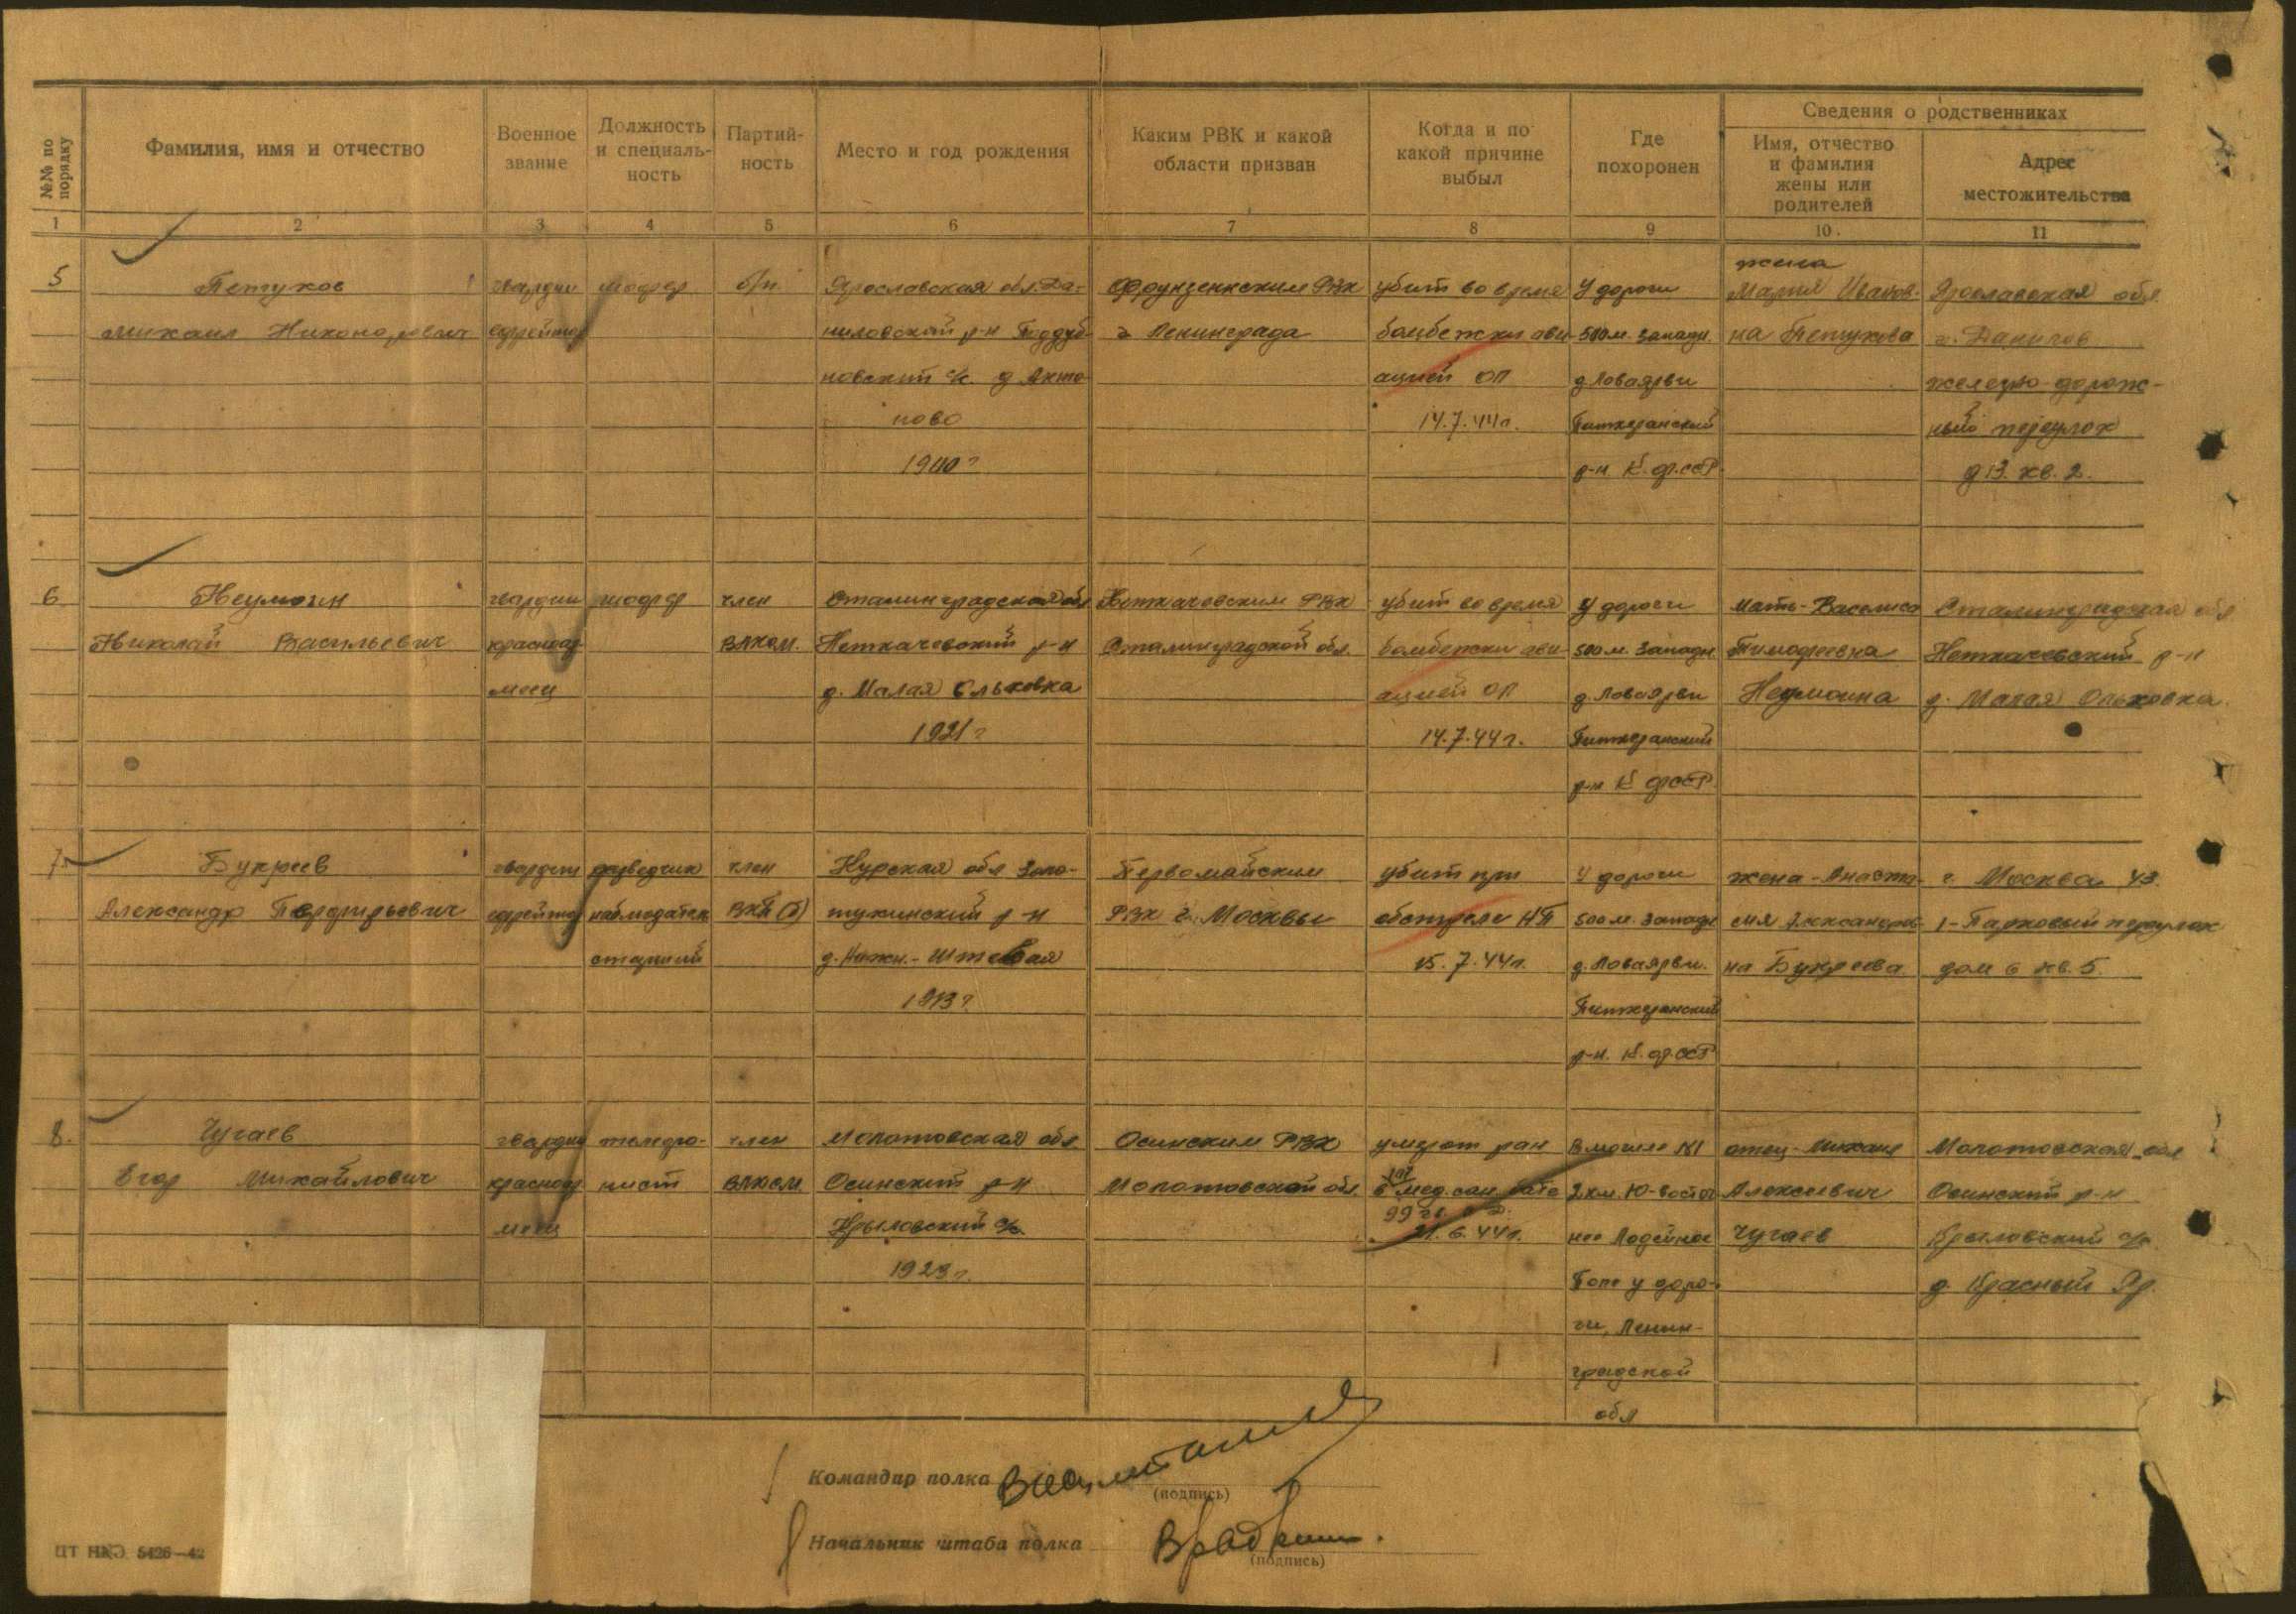 №№ по порядку
Фамилия, имя и отчество
Военное звание
Должность и специаль-ность
Партий-ность
Место и год рождения
Каким РВК и какой области призван
Когда и по какой причине выбыл
Где похоронен
Сведения о родственниках
Имя, отчество и фамилия жены или родителей
Адрес местожительства
1 2 3 4 5 6 7 8 9 10. 11
5
Петухов
Михаил Никонорович
гвардии
ефрейтор
шофер
б/п
Ярославская обл. Да-
ниловский р-н Поддуб-
новский с/с. д Анто-
ново
1910 г
Фрунзенским РВК
г Ленинграда
убит во время
бомбежки ави-
ацией ОП
14.7.44 г.
У дороги
500 м. западн.
д Ловаярви
Питкярански
р-н К. ф. ССР.
жена
Мария Иванов-
на Петухова
Ярославская обл
г. Данилов
железно-дорож-
ный переулок
д 13. кв. 2.
6
Неумоин
Николай Васильевич
гвардии
красноар-
меец
шофер
член
ВЛКСМ.
Сталинградская обл
Неткачевский р-н
д. Малая Ольховка
1921 г
Неткачевским РВК
Сталинградской обл.
убит во время
бомбежки ави-
ацией ОП
14.7.44 г.
У дороги
500 м. западн
д Ловаярви
р-н К ф ССР.
мать - Василиса
Тимофеевна
Неумоина
Сталинградская обл
Неткачевский р-н
д. Малая Ольховка.
7.
Букреев
Александр Порфирьевич
гвардии
ефрейтор
разведчик
наблюдатель
старший
член
ВКП (б)
Курская обл Золо-
тухинский р-н
1913 г.
Первомайским
РВК г. Москвы
убит при
обстреле НП
15.7.44 г.
У дороги
500 м. западн
д. Ловаярви.
р-н. К. ф. ССР
жена - Анаста-
сия Александров-
на Букреева
г. Москва 43.
1 - Парковый переулок
дом 6 кв. 5.
8.
Чугаев
Егор Михайлович
гвардии
красноар
меец
телефо-
нист
член
ВЛКСМ
Молотовская обл
Осинский р-н
Крыловский с/с.
1923 г.
Осинским РВК
Молотовской обл
умер от ран
в мед. сан. бате
99 гв. с. д.
21.6.44 г.
В могиле №1
2 км. Ю-восточ
нее Лодейное
Поле у доро-
ги, Ленин-
градской
обл
отец - Михаил
Алексеевич
Чугаев
Молотовская обл
Осинский р-н
Крыловский с/с.
д. Красный Яр.
Командир полка
(подпись)
Начальник штаба полка
(подпись)
ЦТ НКО 5426—42